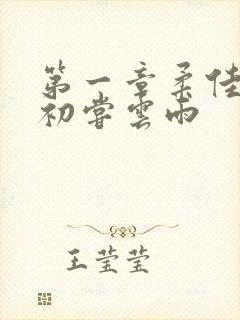 第一章柔佳
初嘗雲雨
王莹莹